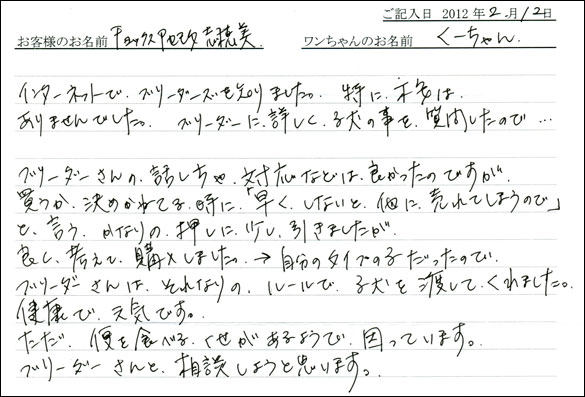 ご記入日 2012年2月12日
お客様のお名前 志穂美 ワンちゃんのお名前 くーちゃん
インターネットで、ブリーダーズを知りました。特に、不安は、
ありませんでした。ブリーダーに、詳しく、子犬の事を、質問したので…
ブリーダーさんの、話し方や、対応などは、良かったのですが、
買うか、決めかねてる、時に、「早く、しないと、他に、売れてしまうので」
と、言う、かなりの、押しに、少し、引きましたが、
良く、考えて、購入しました。→自分のタイプの子だったので、
ブリーダーさんは、それなりの、ルールで、子犬を渡して、くれました。
健康で、元気です。
ただ、便を食べる、くせが、あるようで、困っています。
ブリーダーさんと、相談しようと思います。